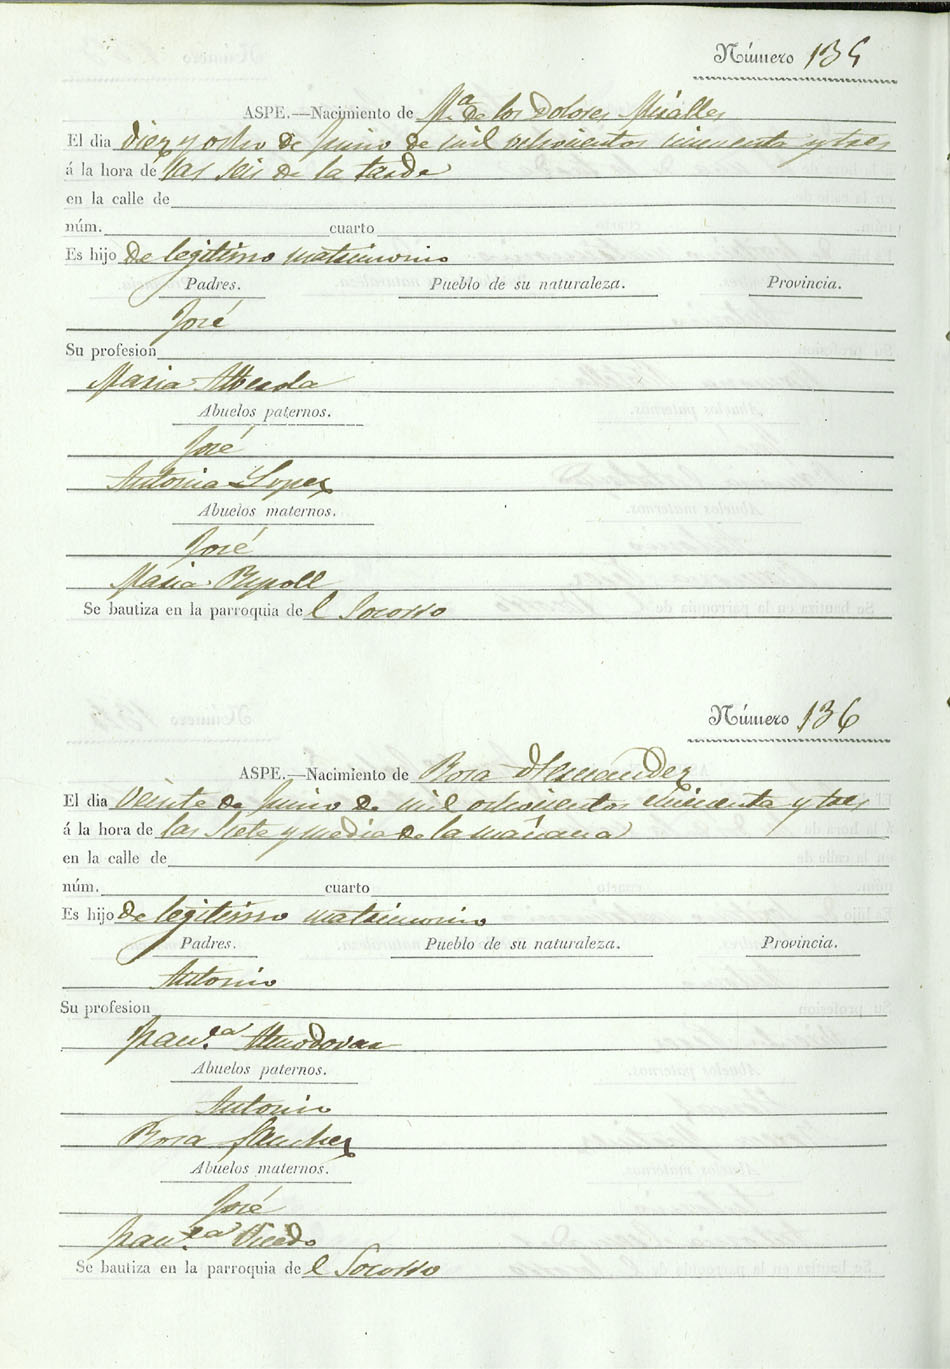 Número 135
ASPE.—Nacimiento de Mª de los Dolores Miralles
El dia diez y ocho de Junio de mil ochocientos cincuenta y tres
á la hora de las seis de la tarde
en la calle de
núm. cuarto
Es hijo de legitimo matrimonio
Padres. Pueblo de su naturaleza. Provincia.
José
Su profesion
Maria
Abuelos paternos.
José
Antonia Lopez
Abuelos maternos.
José
Maria Ripoll
Se bautiza en la parroquia de l Socorro
Número 136
ASPE.—Nacimiento de Rosa Hernandez
El dia veinte de Junio de mil ochocientos cincuenta y tres
á la hora de las siete y media de la mañana
en la calle de
núm. cuarto
Es hijo de legitimo matrimonio
Padres. Pueblo de su naturaleza. Provincia.
Antonio
Su profesion
Fran.ca Almodovar
Abuelos paternos.
Antonio
Rosa Sanchez
Abuelos maternos.
José
Fran.ca Vicedo
Se bautiza en la parroquia de l Socorro